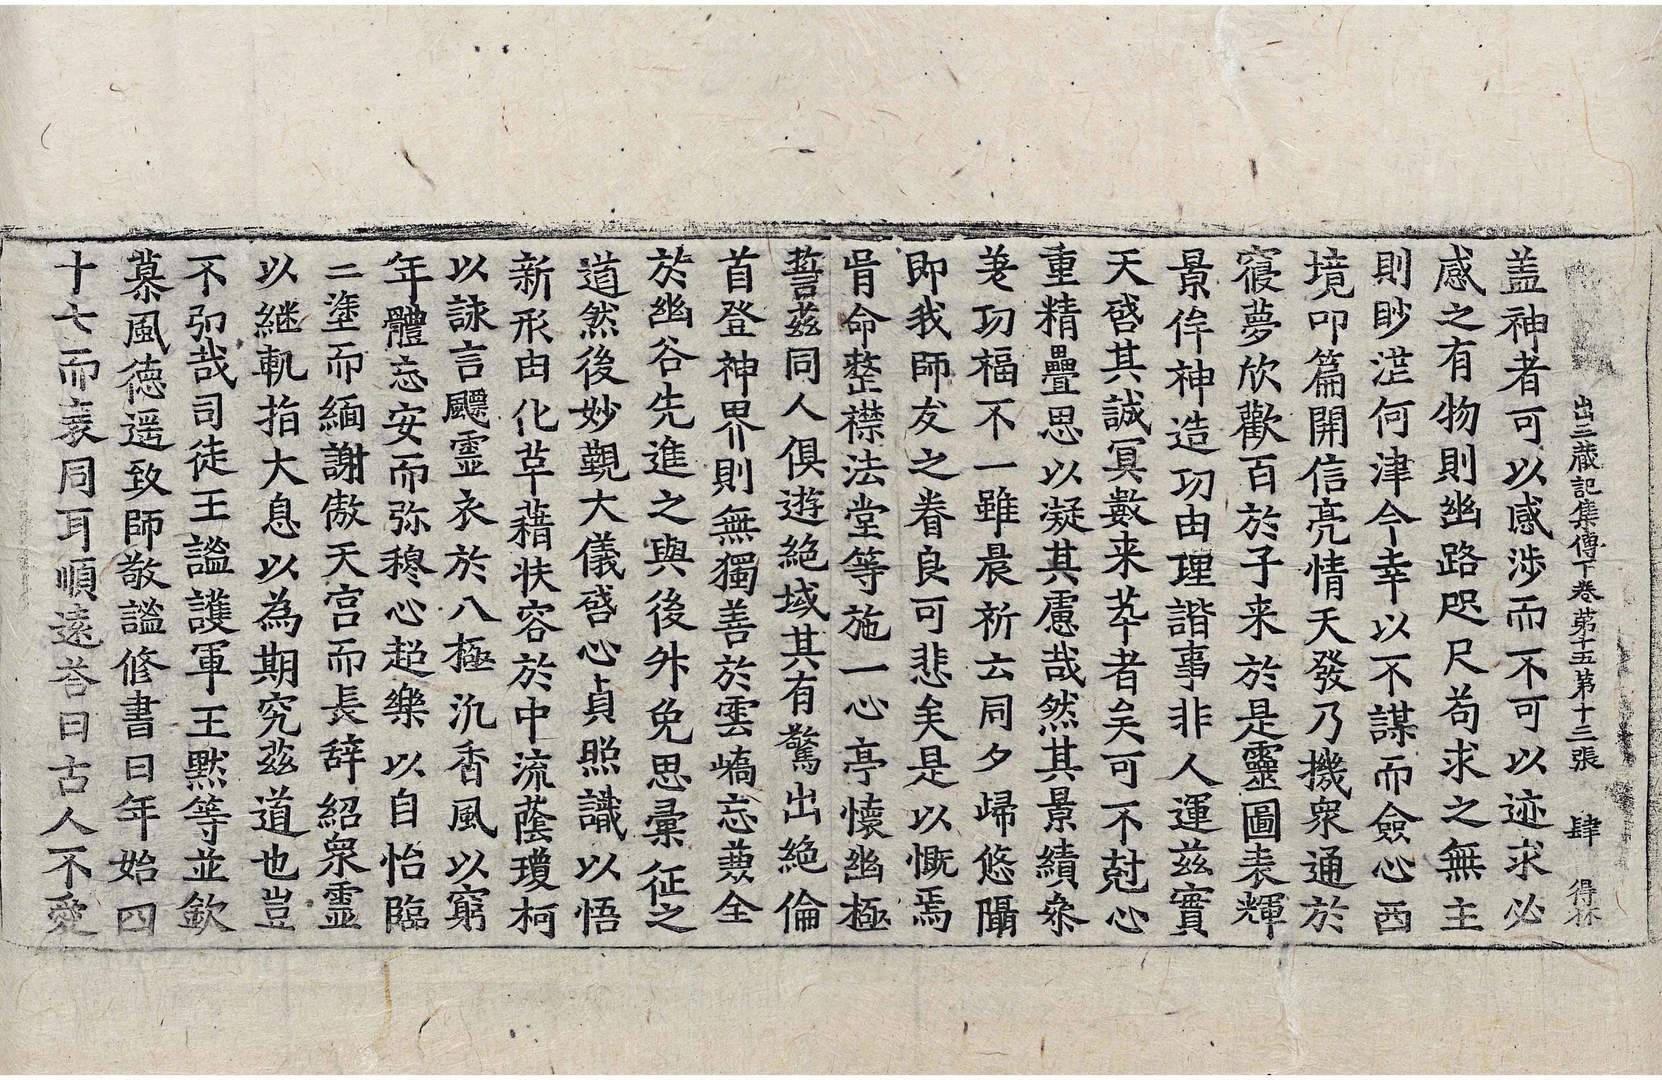 出三藏記集傳下卷第十五第十三張 肆 得林
盖神者可以感涉而不可以迹求必
感之有物則幽路咫尺苟求之無主
則眇茫何津今幸以不謀而僉心西
境叩篇開信亮情天發乃機衆通於
寢夢欣歡百於子来於是靈圖表輝
景侔神造功由理諧事非人運茲實
天啓其誠冥數来萃者矣可不尅心
重精疊思以凝其慮哉然其景績叅
差功福不一雖晨祈云同夕歸悠隔
即我師友之眷良可悲矣是以慨焉
胥命整襟法堂等施一心亭懷幽極
誓茲同人俱遊絕域其有驚出絕倫
首登神界則無獨善於雲嶠忘兼全
於幽谷先進之與後升免思彙征之
道然後妙觀大儀啓心貞照識以悟
新形由化革藉扶容於中流蔭瓊柯
以詠言飄霊衣於八極汎香風以窮
年體忘安而弥穆心超樂以自怡臨
三塗而緬謝傲天宮而長辞紹衆霊
以継軌指大息以為期究茲道也豈
不弘哉司徒王謐護軍王默等並欽
慕風德遥致師敬謐修書曰年始四
十七而衰同耳順遠荅曰古人不愛